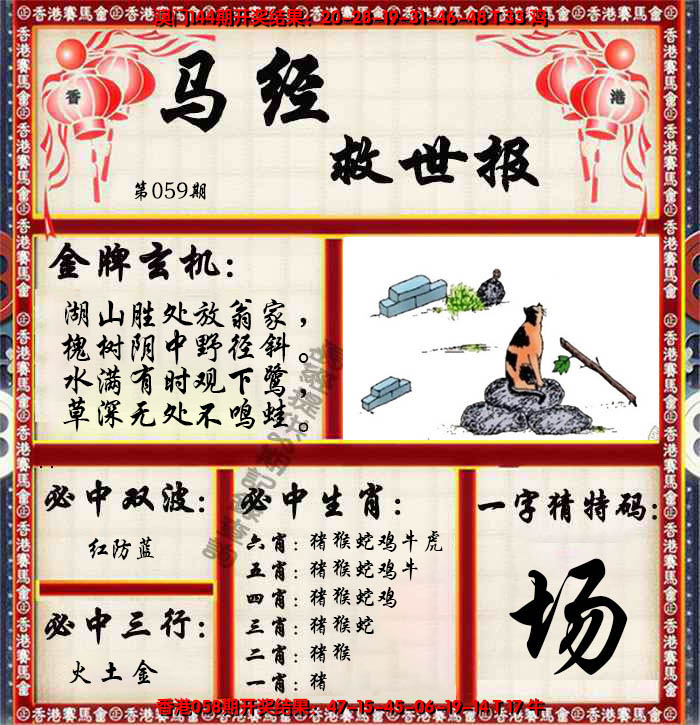 澳门144期开奖结果：20-28-19-31-46-48 T 33 鸡
香 港
马经
救世报
第059期
金牌玄机：
湖山胜处放翁家，
槐树阴中野径斜。
水满有时观下鹭，
草深无处不鸣蛙。
必中双波：
红防蓝
必中三行：
火土金
必中生肖：
六肖：猪猴蛇鸡牛虎
五肖：猪猴蛇鸡牛
四肖：猪猴蛇鸡
三肖：猪猴蛇
二肖：猪猴
一肖：猪
一字猜特码：
场
香港058期开奖结果：47-15-45-06-19-14 T 17 牛
香港賽馬會